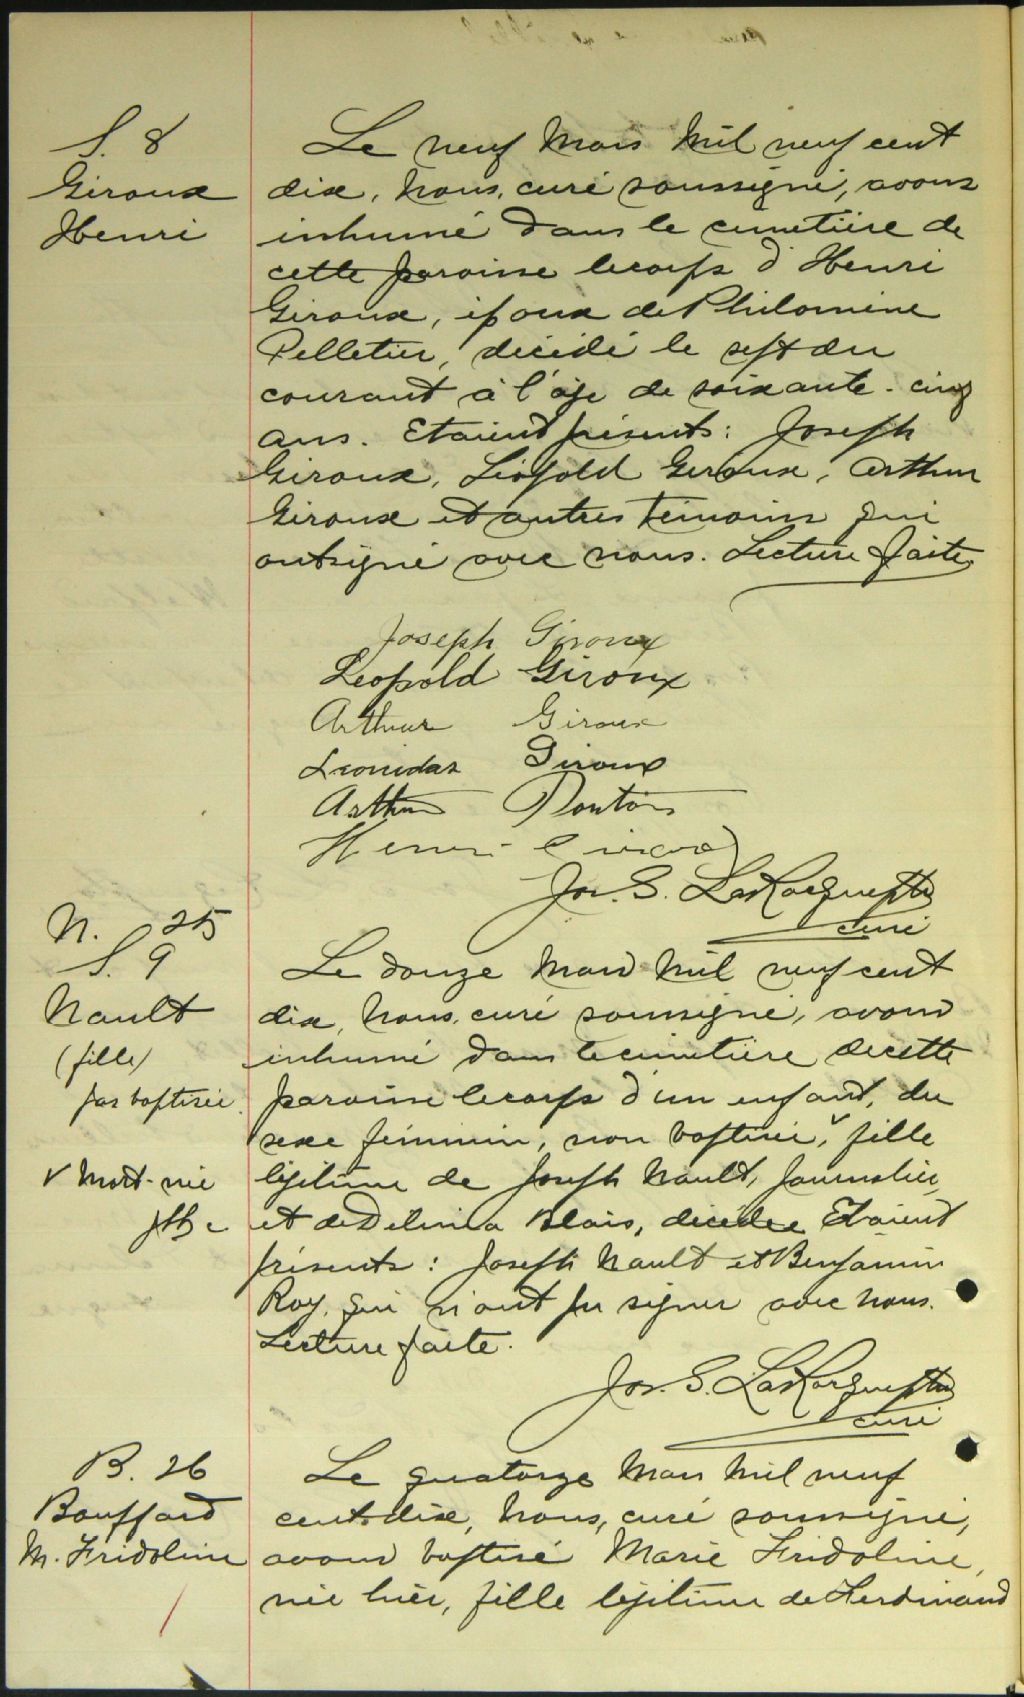 S. 8
Giroux
Henri
Le neuf Mars Mil neuf cent
dix, Nous, curé soussigné, avons
inhumé dans le cimetière de
cette paroisse le corps d'Henri
Giroux, époux de Philomène
Pelletier, décédé le sept du
courant à l'âge de soixante-cinq
ans. Etaient présents: Joseph
Giroux, Léopold Giroux, Arthur
Giroux et autres témoins qui
ont signé avec nous. Lecture faite.
Joseph Giroux
Leopold Giroux
Arthur Giroux
Leonidas Giroux
Arthur
Henri
Jos. G.
curé
N. 25
S. 9
Nault
(fille)
pas baptisée
v Mort-née
Le douze Mars Mil neuf cent
dix, Nous, curé soussigné, avons
inhumé dans le cimetière de cette
paroisse le corps d'un enfant, du
sexe féminin, non baptisé, v fille
légitime de Joseph Nault, journalier,
et de Delima Blais, décédée Etaient
présents: Joseph Nault et Benjamin
Roy, qui n'ont pu signer avec nous.
Lecture faite.
Jos. G.
curé
B. 26
Bouffard
M. Fridoline
Le quatorze Mars Mil neuf
cent dix, Nous, curé soussigné,
avons baptisé Marie Fridoline,
née hier, fille légitime de Ferdinand